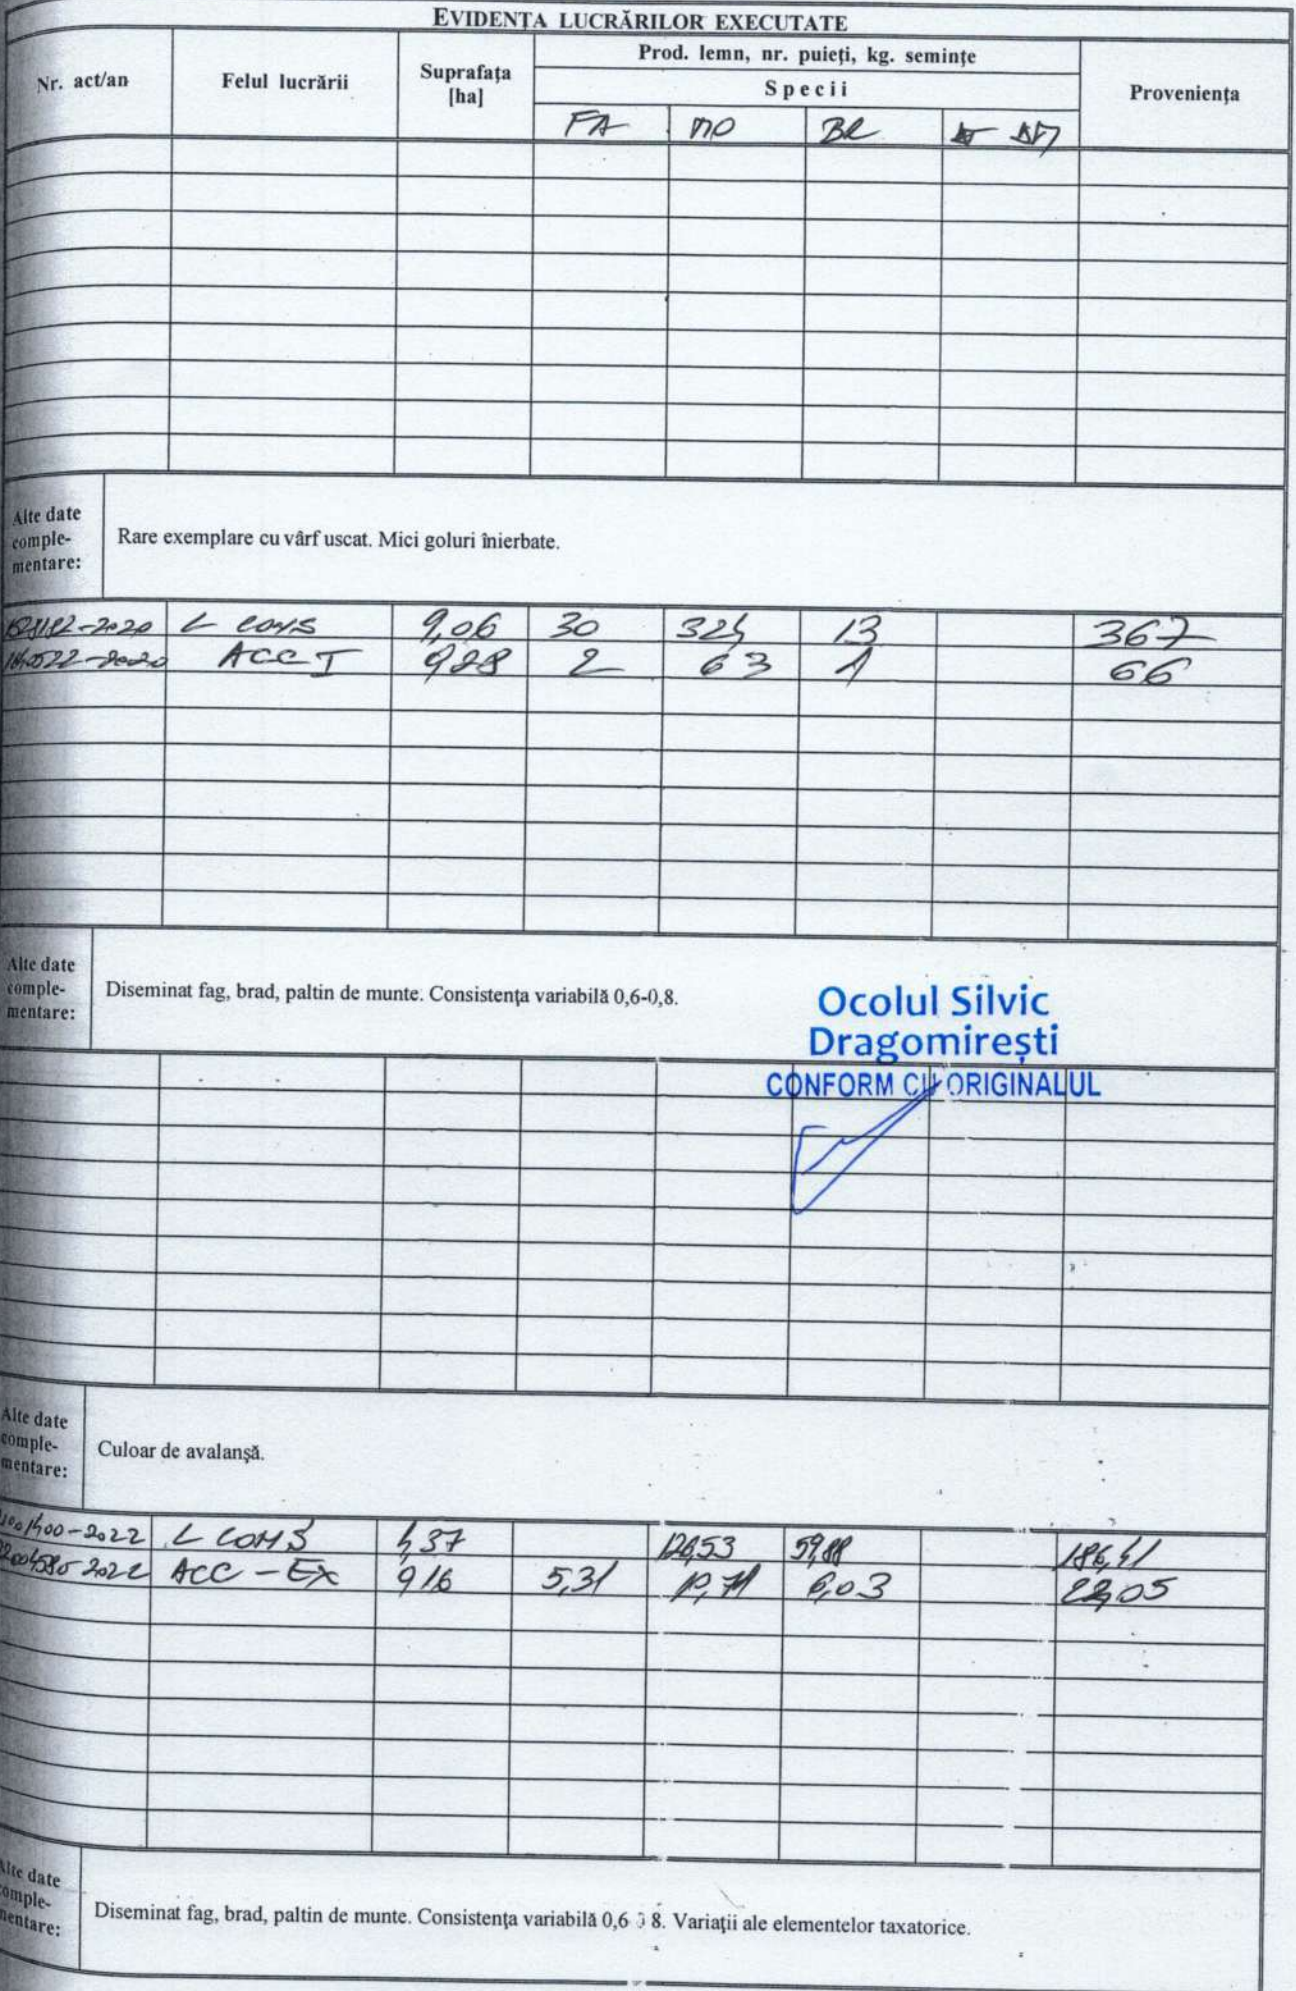 EVIDENȚA LUCRĂRILOR EXECUTATE
Nr. act/an Felul lucrării Suprafața [ha] Prod. lemn, nr. puieți, kg. semințe Proveniența
Specii
FA MO BR
Alte date comple-mentare: Rare exemplare cu vârf uscat. Mici goluri înierbate.
-2020 L CONS 9,06 30 324 13 367
-2020 ACC I 9,28 2 63 1 66
Alte date comple-mentare: Diseminat fag, brad, paltin de munte. Consistența variabilă 0,6-0,8.
Ocolul Silvic
Dragomirești
CONFORM CU ORIGINALUL
Alte date comple-mentare: Culoar de avalanșă.
-2022 L CONS 4,37 126,53 59,88 186,41
2022 ACC - EX 9,16 5,31 10,71 6,03 22,05
Alte date comple-mentare: Diseminat fag, brad, paltin de munte. Consistența variabilă 0,6 8. Variații ale elementelor taxatorice.